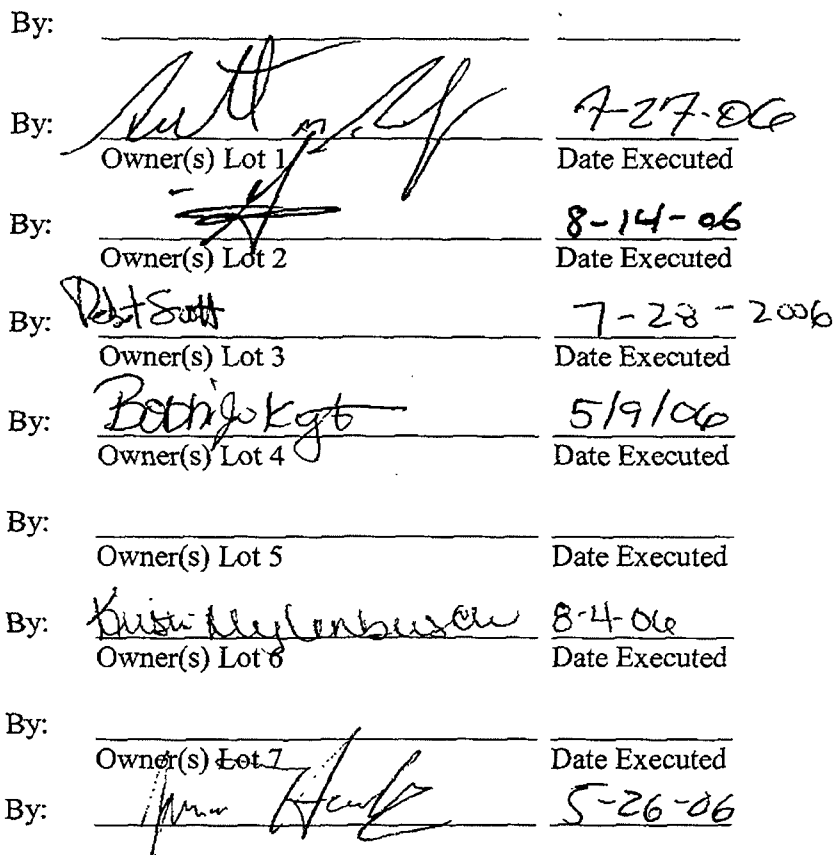 By:
By: 7-27-06
Owner(s) Lot 1 Date Executed
By: 8-14-06
Owner(s) Lot 2 Date Executed
By: Scott 7-28-2006
Owner(s) Lot 3 Date Executed
By: 5/9/06
Owner(s) Lot 4 Date Executed
By:
Owner(s) Lot 5 Date Executed
By: 8-4-06
Owner(s) Lot 6 Date Executed
By:
Owner(s) Lot 7 Date Executed
By: 5-26-06